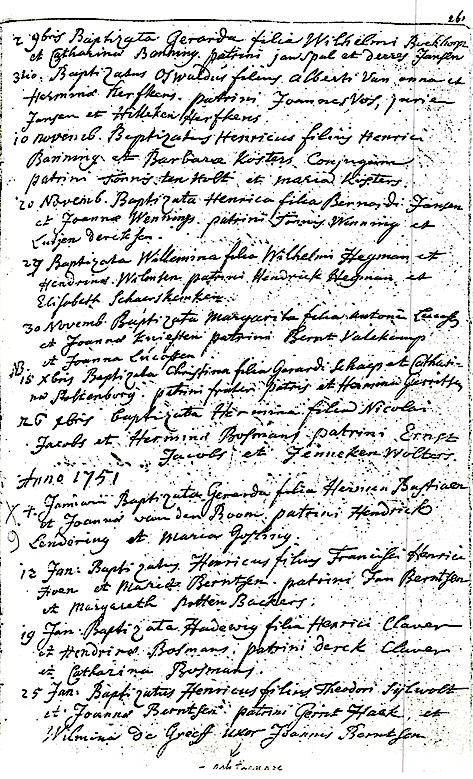 26
2 9bris Baptizata Gerarda filia Wilhelmi
et Catharina Banning. patrini jan spal et derres Jansen
3tio. Baptizatus Oswaldus filius alberti Van anna et
Hermina Herfkens. patrini Joannes Vos, jurrie
Jansen et Hilleken Herfkens
10 novemb. Baptizatus Henricus filius Henrici
Banning et Barbara Kösters Conjugum
patrini Tonnis ten Holt et maria Kösters
20 Novemb. Baptizata Henrica filia Bernardi Jansen
et Joanna Wennings. patrini Tonnis Wenning et
Lutjen dercksen
29 Baptizata Willemina filia Wilhelmi Heyman et
Hendrina Wilmsen patrini Hendrick Heyman et
Elisabeth
30 Novemb. Baptizata Margarita filia Antonii Lucassen
et Joanna Kniesten patrini Bernt Valekamp
et Joanna Lucassen
NB. 15 Xbris Baptizata Christina filia Gerardi Schaep et Cathari-
na patrini frater patris et Hermina Gerritsen
26 xbris baptizata Hermina filia Nicolai
Jacobs et Hermina Bosmans, patrini Ernst
Jacobs et Jenneken Wolters.
Anno 1751
X 4. Januarii Baptizata Gerarda filia Hermen Bastiaen
et Joanna van den Boom, patrini Hendrick
9 Lendering et Maria
12 Jan: Baptizatus Henricus filius Francisci Henrici
Hoen et Maria Berntsen. patrini Jan Berntsen
et Margareth Rotten Backers.
19 Jan. Baptizata Hadewig filia Henrici Claver
et Hendrina Bosmans, patrini derck Claver
et Catharina Bosmans.
25 Jan: Baptizatus Henricus filius Theodori Sijlwolt
et Joanna Berntsen patrini Gerrit Haak et
Wilmina De Greeff uxor Joannis Berntsen